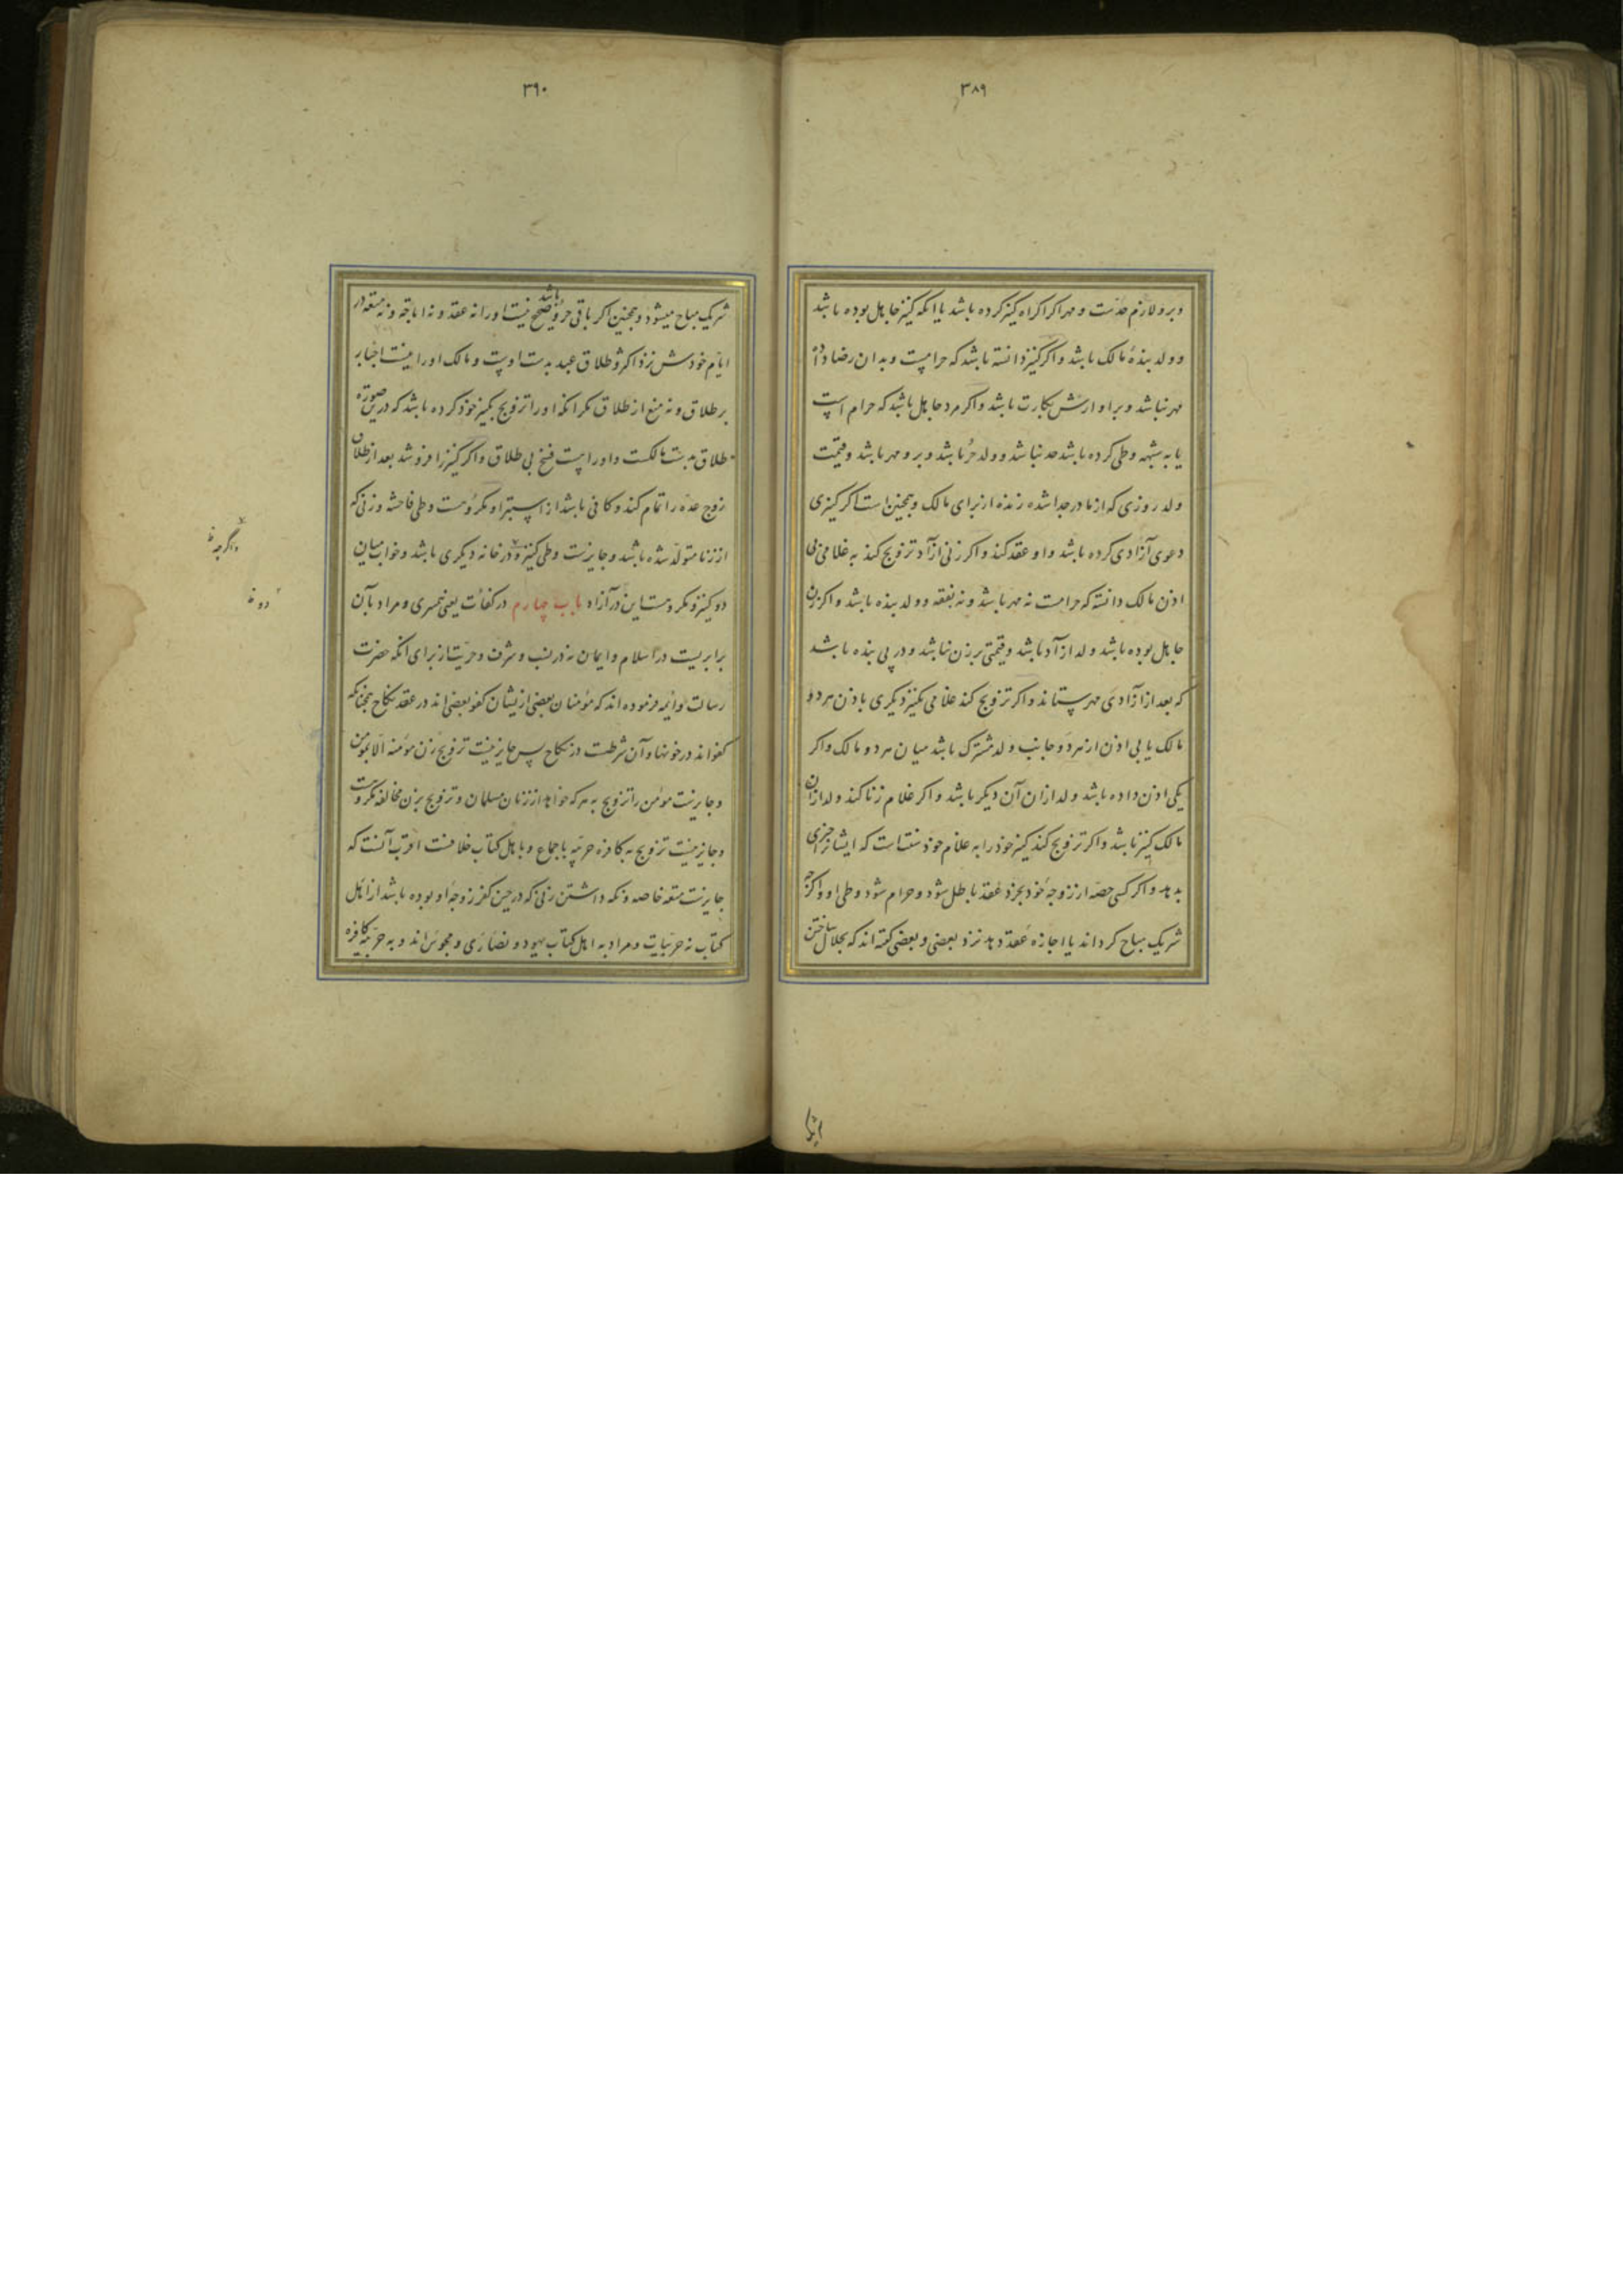 ٣٨٩
و برو لازم حدست و مهر اکر اکراه کنیز کرده باشد یا انکه کنیز جاهل بوده باشد
و ولد بندهٔ مالک باشد و اکر کنیز دانسته باشد که حرامست و بدان رضا داده
مهر نباشد و برو ارش بکارت باشد و اکر مرد جاهل باشد که حرام است
یا به شبهه وطی کرده باشد حد نباشد و ولد حر باشد و برو مهر باشد و قیمت
ولد روزی که از مادر جدا شده زنده از برای مالک و همچنین است اکر کنیزی
دعوی آزادی کرده باشد و او عقد کند و اکر زنی آزاد تزویج کند به غلامی بی
اذن مالک دانسته که حرامست نه مهر باشد و نه نفقه و ولد بنده باشد و اکر زن
جاهل بوده باشد ولد آزاد باشد و قیمتی بر زن نباشد و در پی بنده باشد
که بعد از آزادی مهر بستاند و اکر تزویج کند غلامی بکنیز دیکری باذن هر دو
مالک یا بی اذن از هر دو جانب ولد مشترک باشد میان هر دو مالک و اکر
یکی اذن داده باشد ولد از ان آن دیکر باشد و اکر غلام زنا کند ولد از ان
مالک کنیز باشد و اکر تزویج کند کنیز خود را به غلام خود سنتست که ایشانرا چیزی
بدهد و اکر کسی حصه از زوجهٔ خود بخرد عقد باطل شود و حرام شود وطی او و اکرچه
شریک مباح کرداند یا اجازه عقد دهد نزد بعضی و بعضی کفته اند که بحلال ساختن
٣٩٠
شریک مباح میشود و همچنین اکر باقی حر باشد و صحیح نیست او را نه عقد و نه اباحه و نه متعه در
ایام خودش نزد اکثر و طلاق عبد بدست اوست و مالک او را نیست اجبار
بر طلاق و نه منع از طلاق مکر انکه او را تزویج بکنیز خود کرده باشد که درین صورة
طلاق بدست مالکست و او راست فسخ بی طلاق و اکر کنیز را فروشد بعد از طلاق
زوج عده را تمام کند و کافی باشد از استبرا و مکروهست وطی فاحشه و زنی که
از زنا متولد شده باشد و جایزست وطی کنیز و در خانه دیکری باشد و خواب میان
دو کنیز و مکروهست این در آزاد باب چهارم در کفائت یعنی همسری و مراد بآن
برابریست در اسلام و ایمان نه در نسب و شرف و حریت از برای انکه حضرت
رسالت و ائمه فرموده اند که مؤمنان بعضی از یشان کفو بعضی اند در عقد نکاح همچنانکه
کفو اند در خونها و آن شرطست در نکاح پس جایز نیست تزویج زن مؤمنه الا بمؤمن
و جایزست مؤمن را تزویج به هر که خواهد از زنان مسلمان و تزویج بزن مخالفه مکروهست
و جایز نیست تزویج به کافره حربیه باجماع و باهل کتاب خلافست اقرب آنست که
جایزست متعه خاصه و نکه داشتن زنی که در حین کفر زوجهٔ او بوده باشد از اهل
کتاب نه حربیات و مراد به اهل کتاب یهود و نصاری و مجوس اند و به حربیه کافره
واکرچه
دو